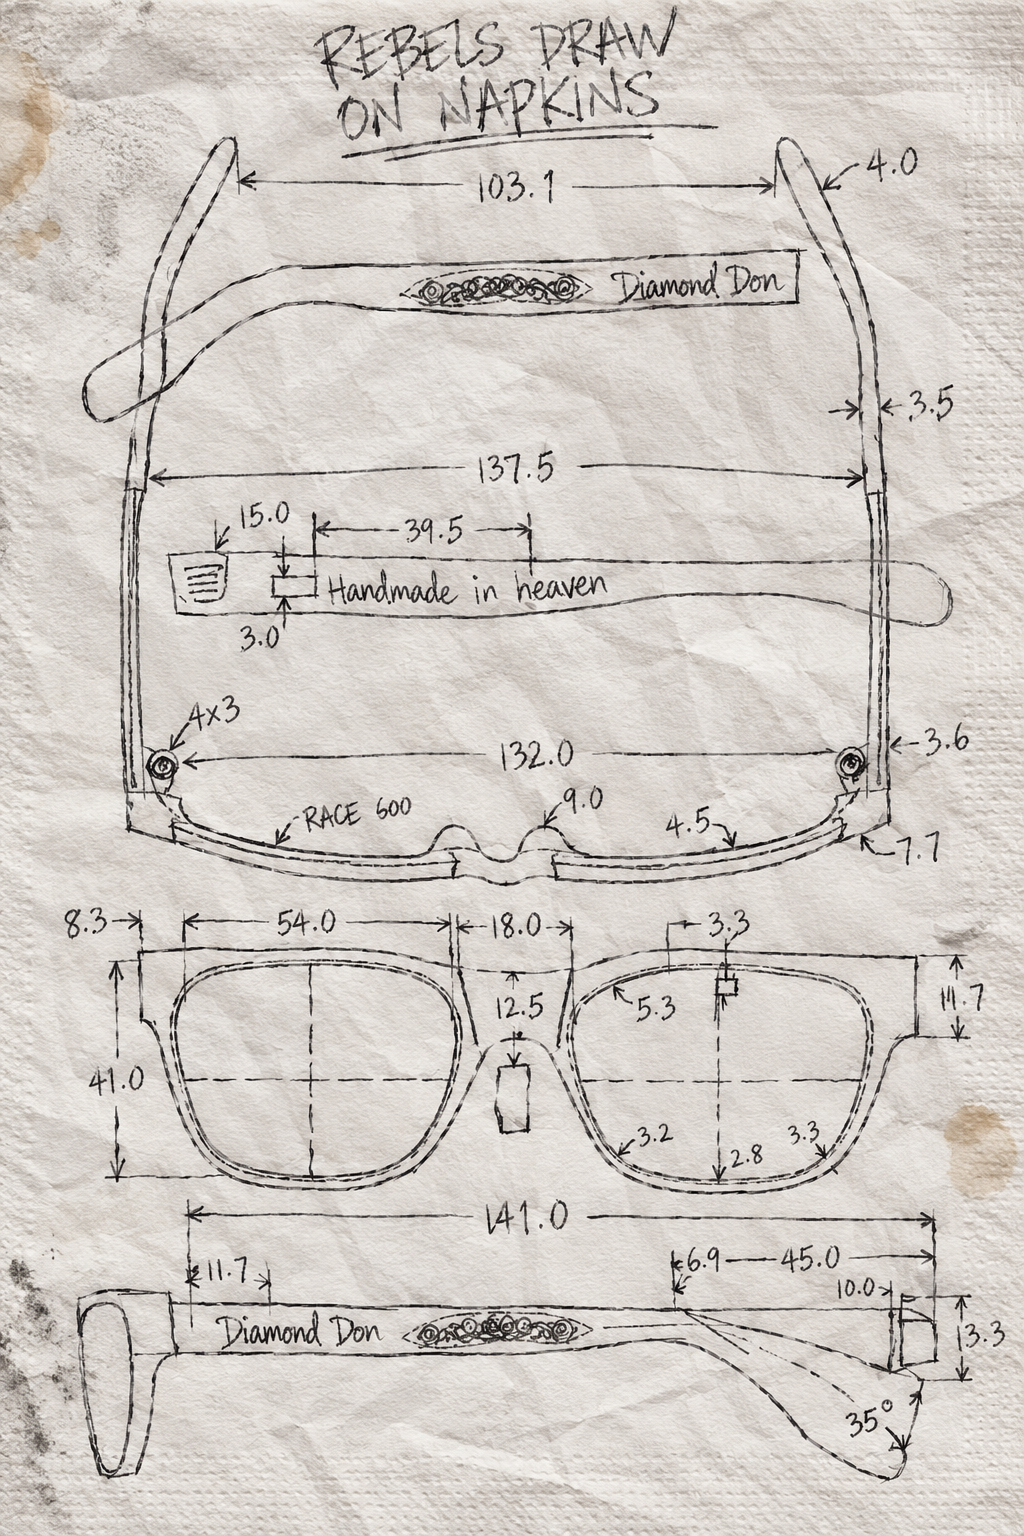 REBELS DRAW
ON NAPKINS
103.1
4.0
Diamond Don
3.5
137.5
15.0
39.5
Handmade in heaven
3.0
4x3
132.0
3.6
RACE 600
9.0
4.5
7.7
8.3
54.0
18.0
3.3
12.5
5.3
11.7
41.0
3.2
2.8
3.3
141.0
11.7
6.9
45.0
10.0
Diamond Don
3.3
35°